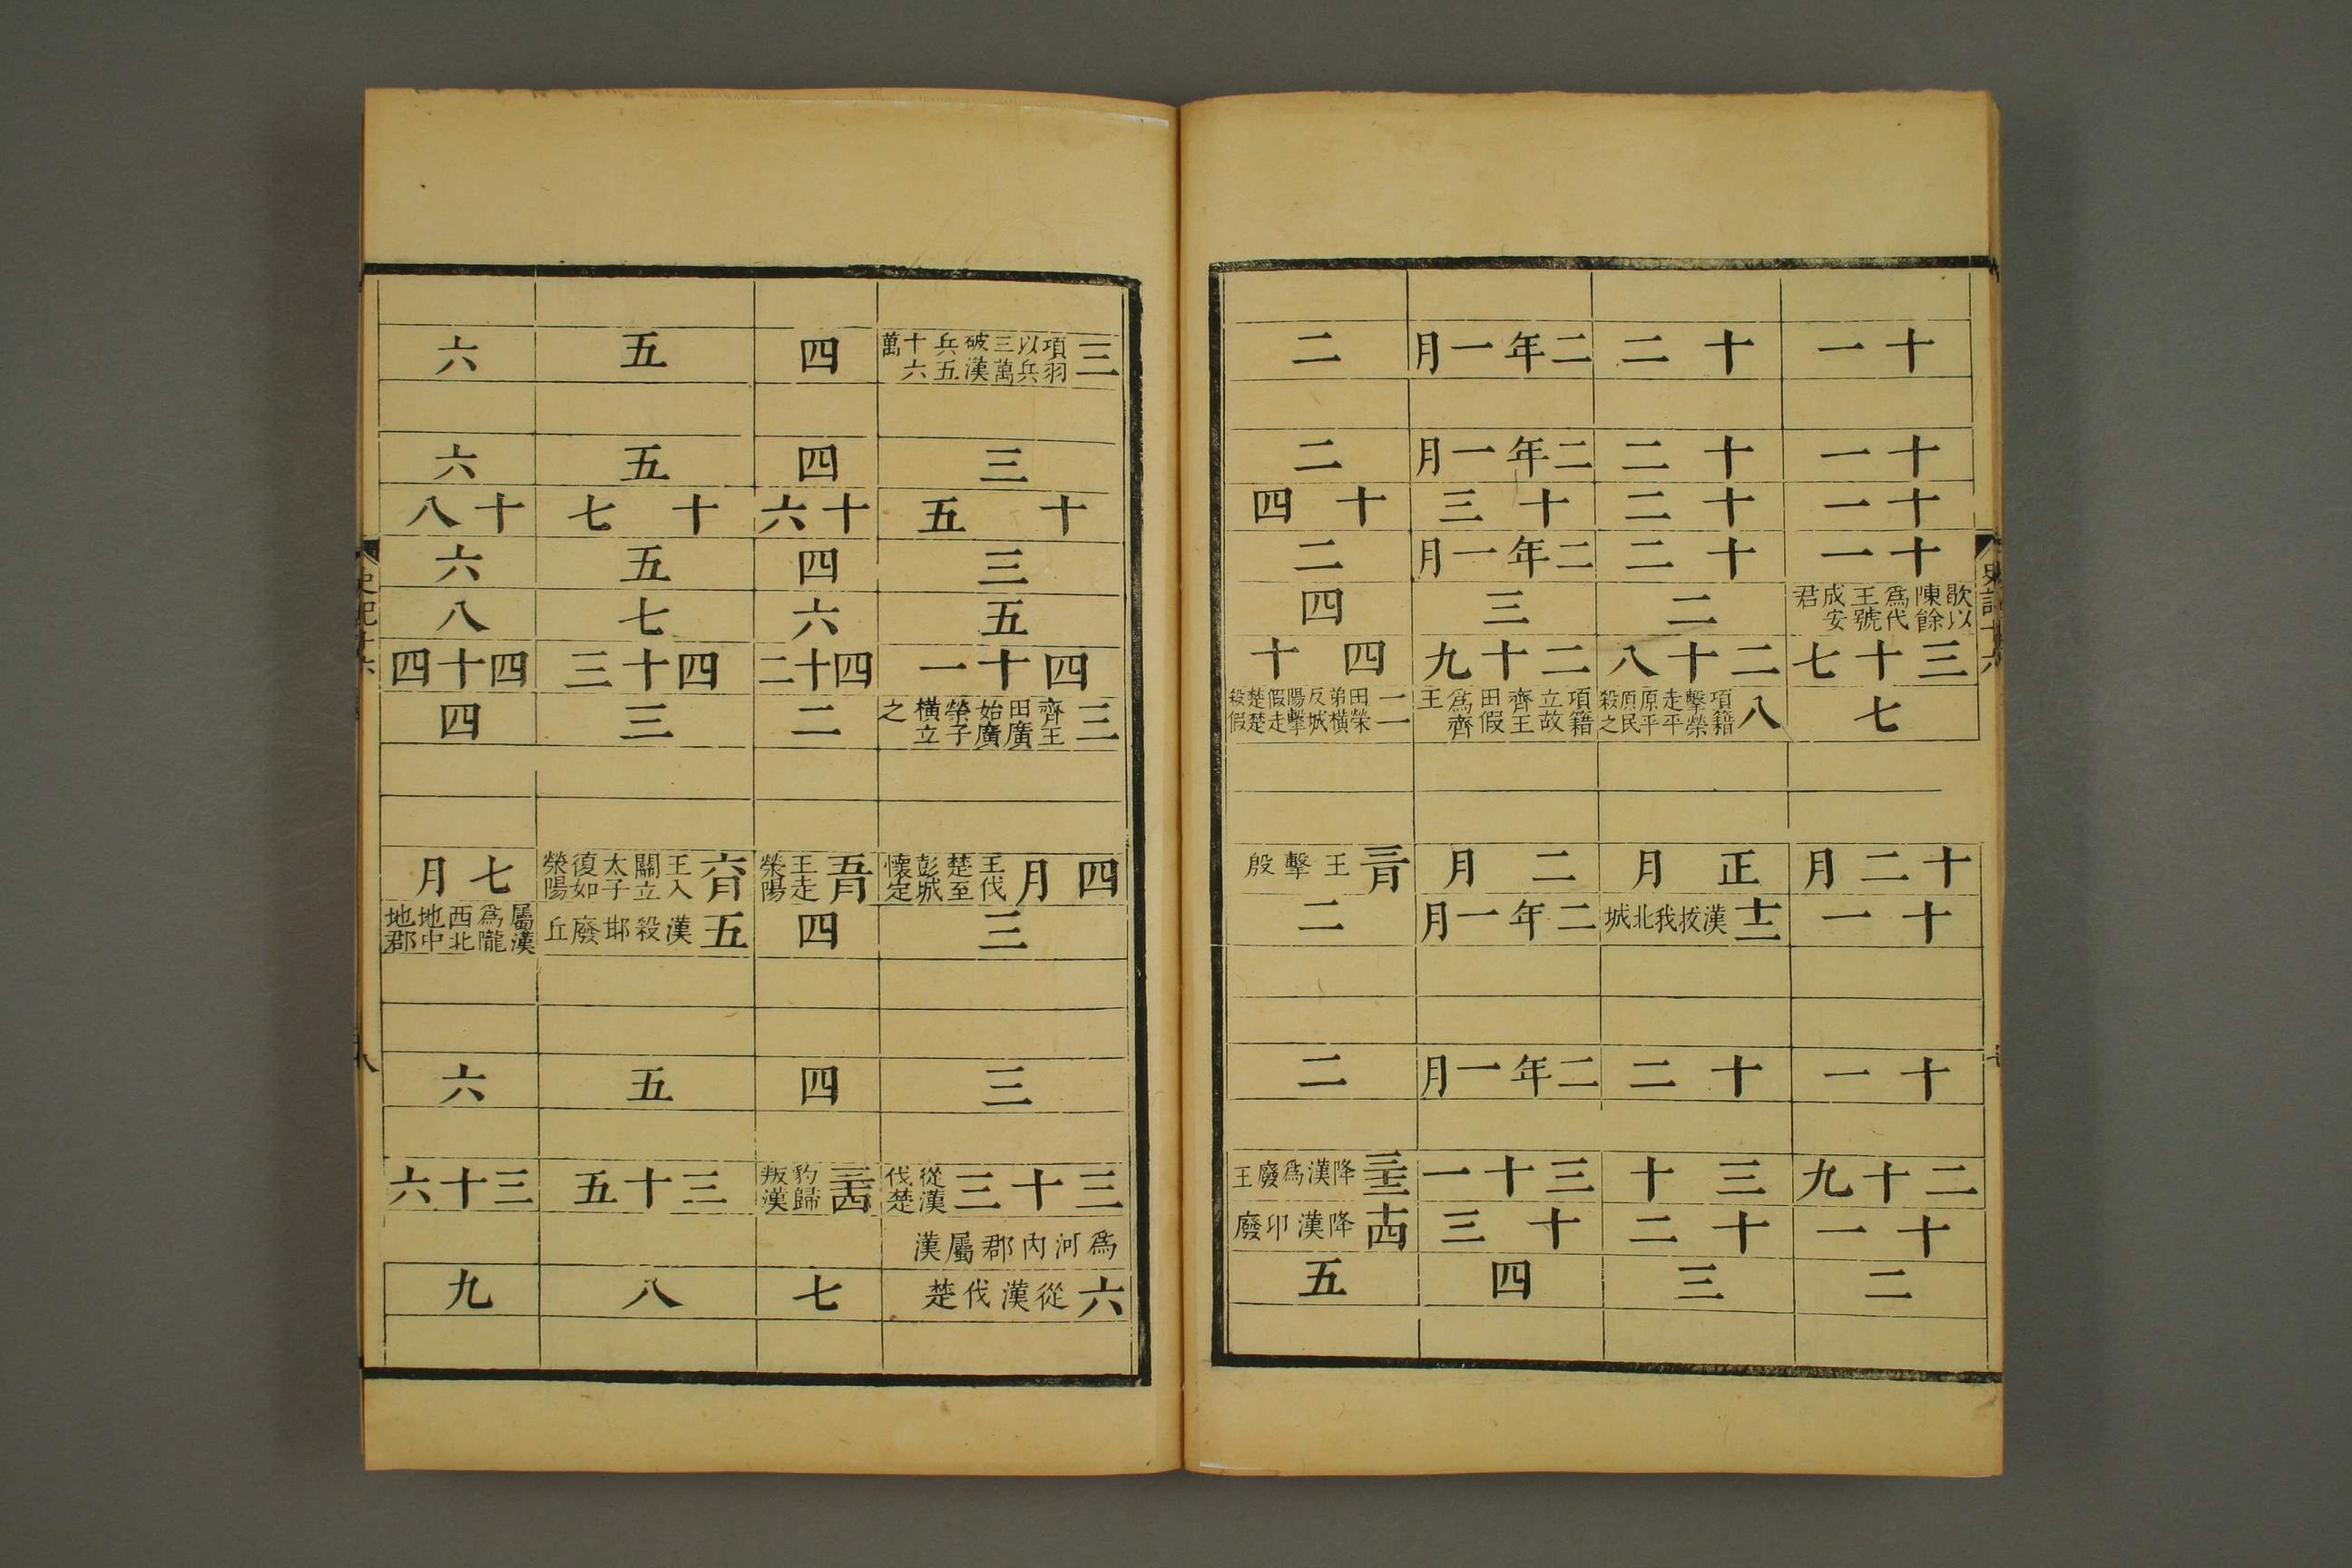 史記十六
十一 十二 二年一月 二
十一 十二 二年一月 二
十一 十二 十三 十四
十一 十二 二年一月 二
歇以陳餘爲代王號成安君 二 三 四
三十七 二十八 二十九 四十
七 八項籍擊榮走平原平原民殺之 項籍立故齊王田假爲齊王 二田榮弟橫反城陽擊假走楚楚殺假
十二月 正月 二月 三月王擊殷
十一 十二漢拔我北城 二年一月 二
十一 十二 二年一月 二
二十九 三十 三十一 三十二降漢爲廢王
十一 十二 十三 十四降漢卬廢
二 三 四 五
三項羽以兵三萬破漢兵五十六萬 四 五 六
三 四 五 六
十五 十六 十七 十八
三 四 五 六
五 六 七 八
四十一 四十二 四十三 四十四
三齊王田廣始廣榮子橫立之 二 三 四
四月王伐楚至彭城懷定 五月王走榮陽 六月王入關立太子復如榮陽 七月
三 四 五漢殺邯廢丘 屬漢爲隴西北地中地郡
三 四 五 六
三十三從漢伐楚 三十四豹歸叛漢 三十五 三十六
爲河内郡屬漢
六從漢伐楚 七 八 九
史記十六
八